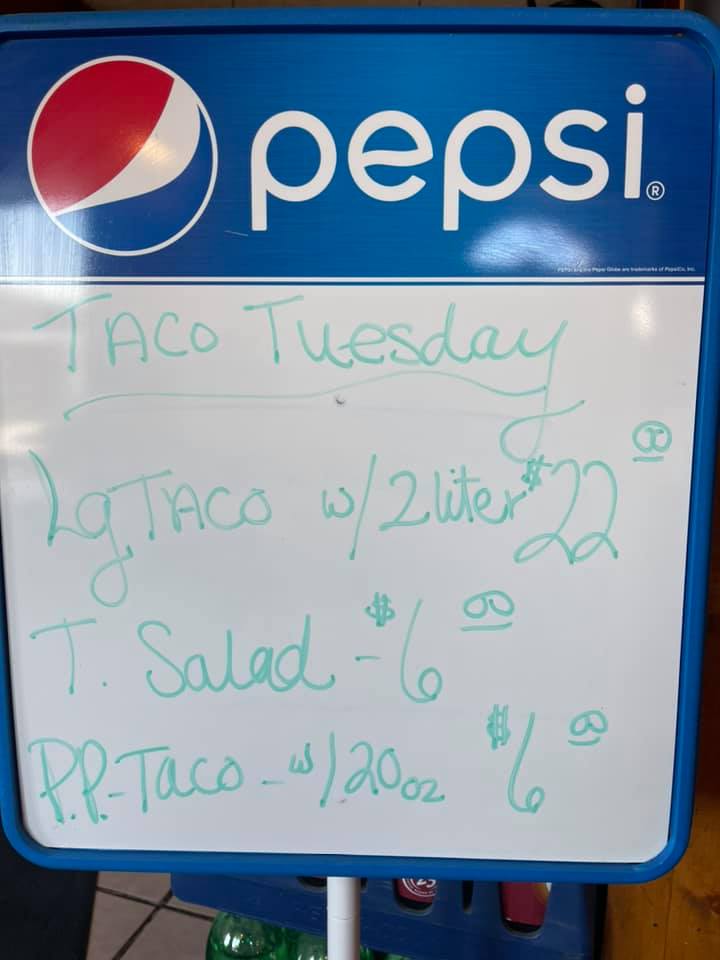 pepsi®
PEPSI and the Pepsi Globe are trademarks of PepsiCo, Inc.
Taco Tuesday
Lg Taco w/2 liter $22 00
T. Salad - $6 00
P.P. - Taco - w/20oz $6 00